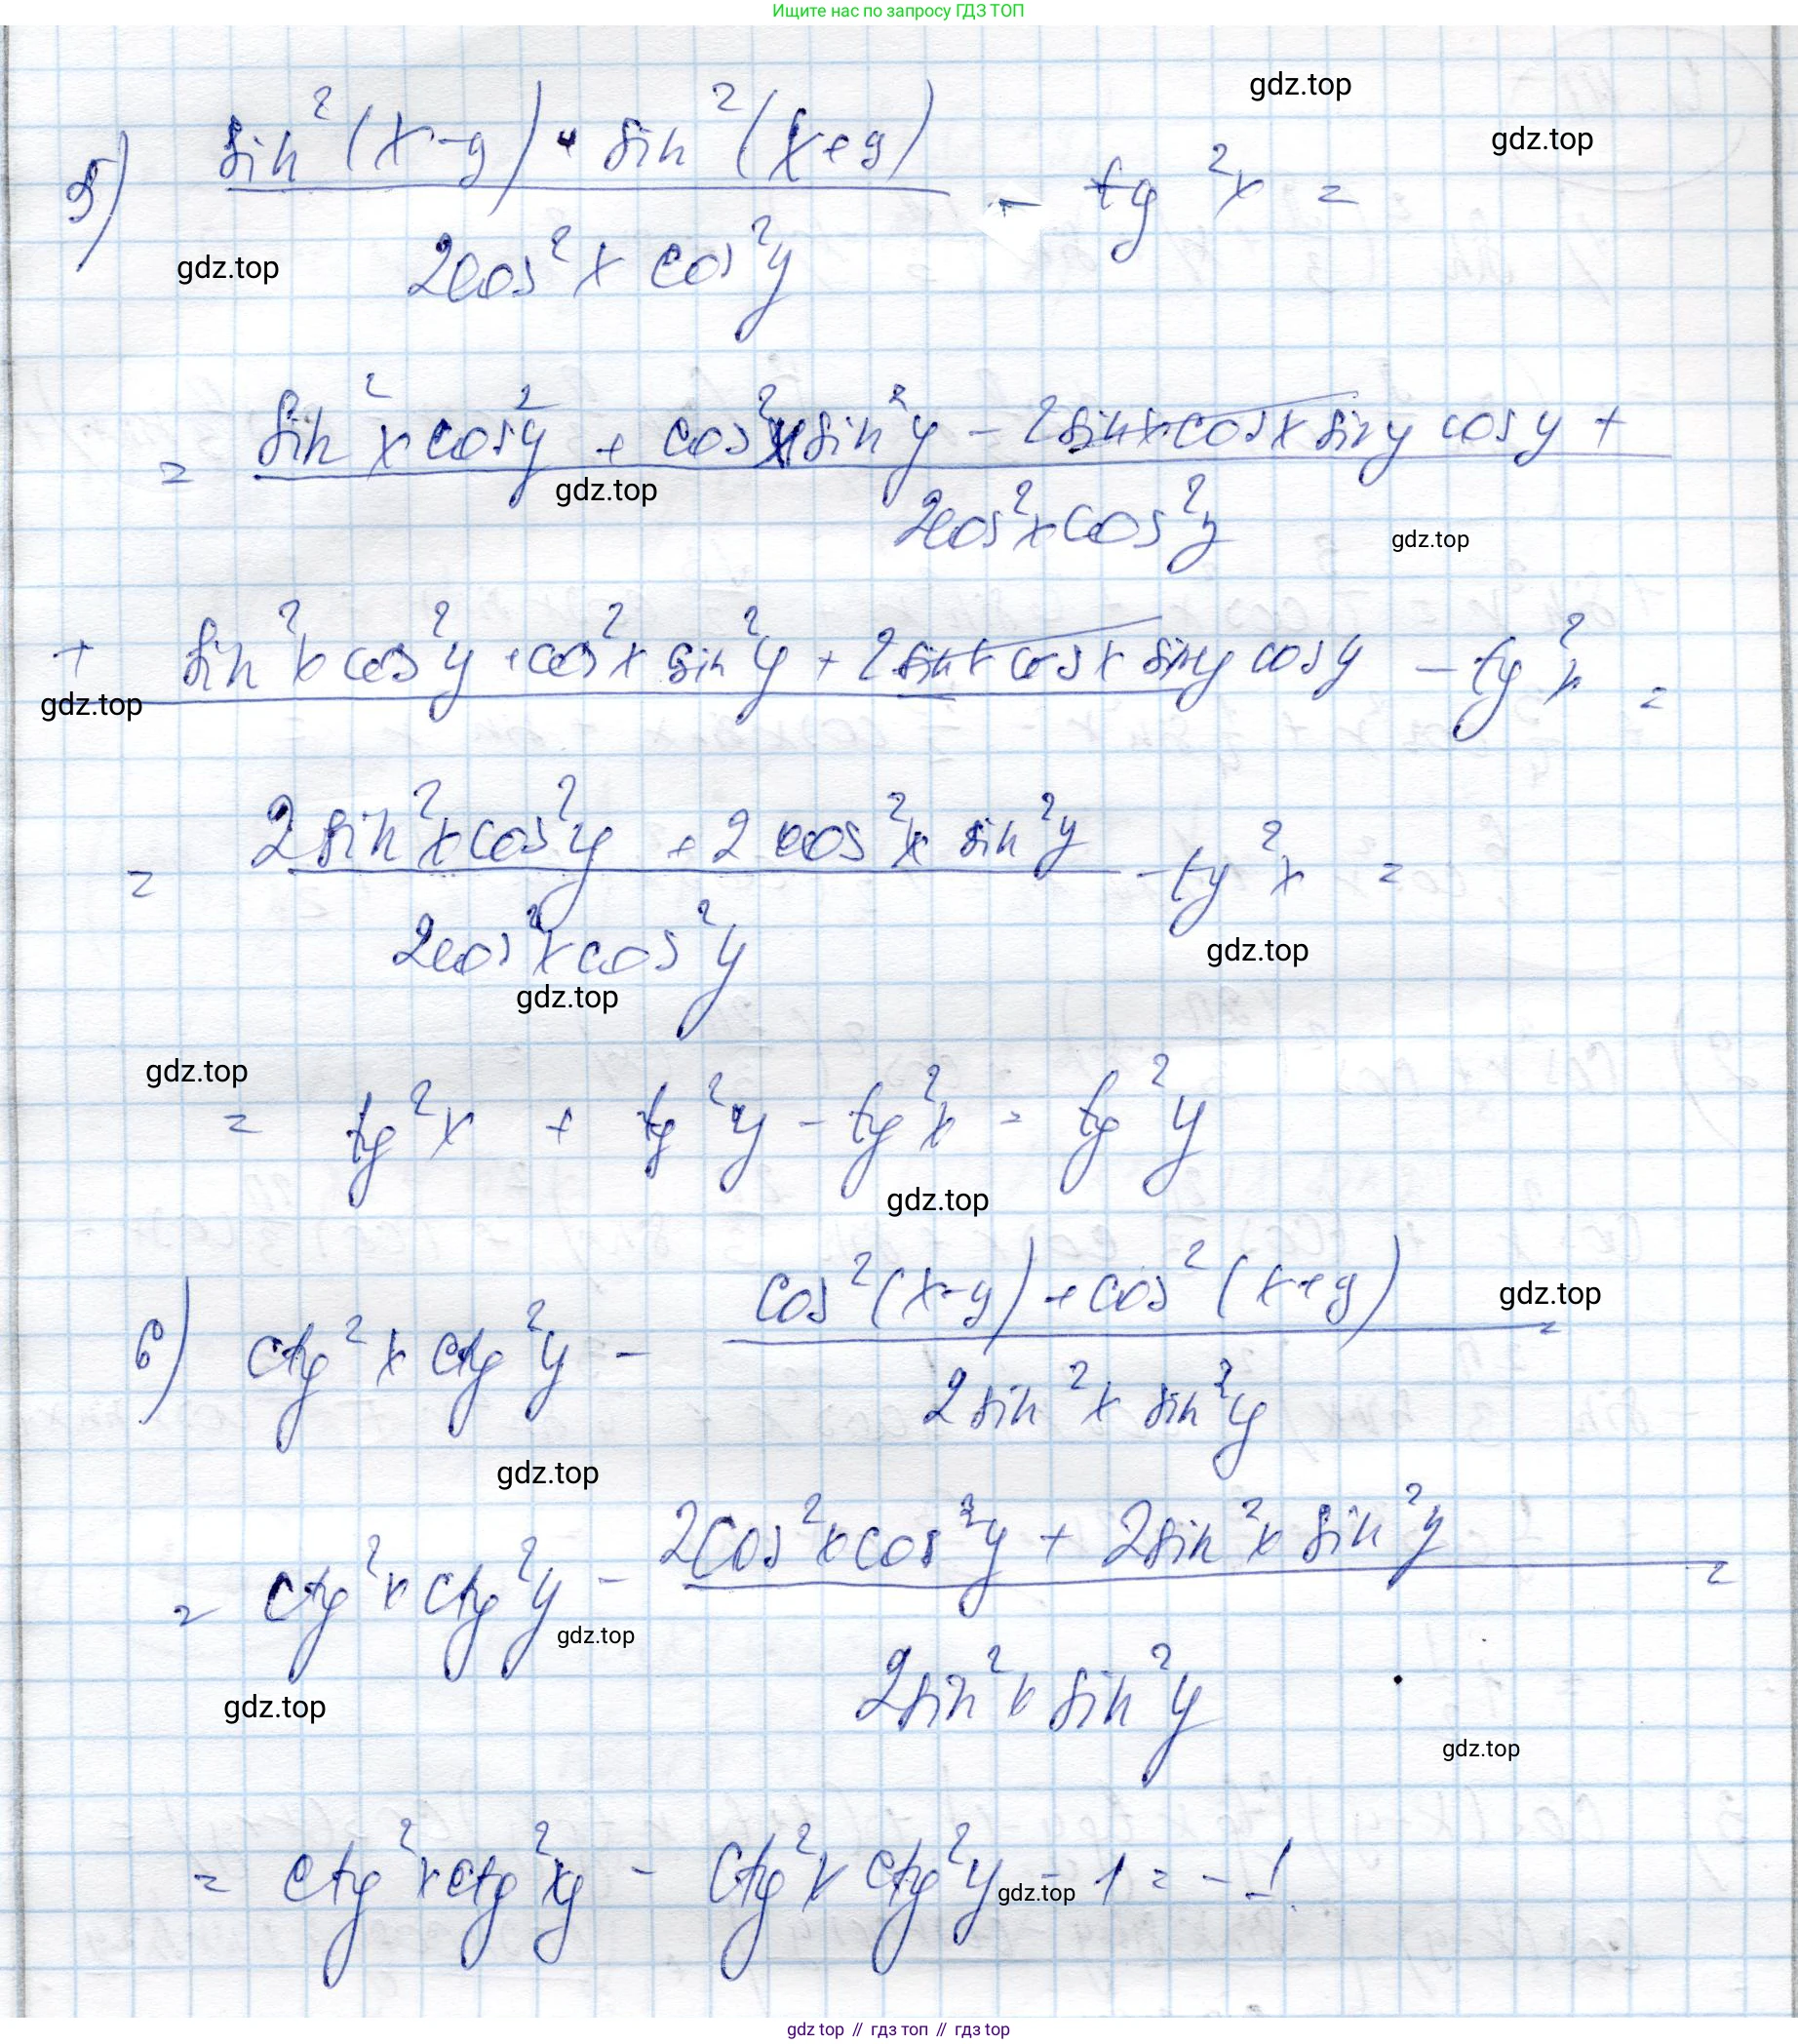 Ищите нас по запросу ГДЗ ТОП
gdz.top
gdz.top
5) sin²(x-y) + sin²(x+y) / 2cos²x cos²y - tg²x =
gdz.top
= sin²x cos²y + cos²x sin²y - 2sinx cosx siny cosy + / 2cos²x cos²y
gdz.top
gdz.top
+ sin²x cos²y + cos²x sin²y + 2sinx cosx siny cosy - tg²x =
gdz.top
= 2sin²x cos²y + 2cos²x sin²y / 2cos²x cos²y - tg²x =
gdz.top
gdz.top
gdz.top
= tg²x + tg²y - tg²x = tg²y
gdz.top
6) ctg²x ctg²y - cos²(x-y) + cos²(x+y) / 2sin²x sin²y =
gdz.top
gdz.top
= ctg²x ctg²y - 2cos²x cos²y + 2sin²x sin²y / 2sin²x sin²y =
gdz.top
gdz.top
gdz.top
= ctg²x ctg²xy - ctg²x ctg²y - 1 = -1
gdz.top
gdz top // гдз топ // gdz top